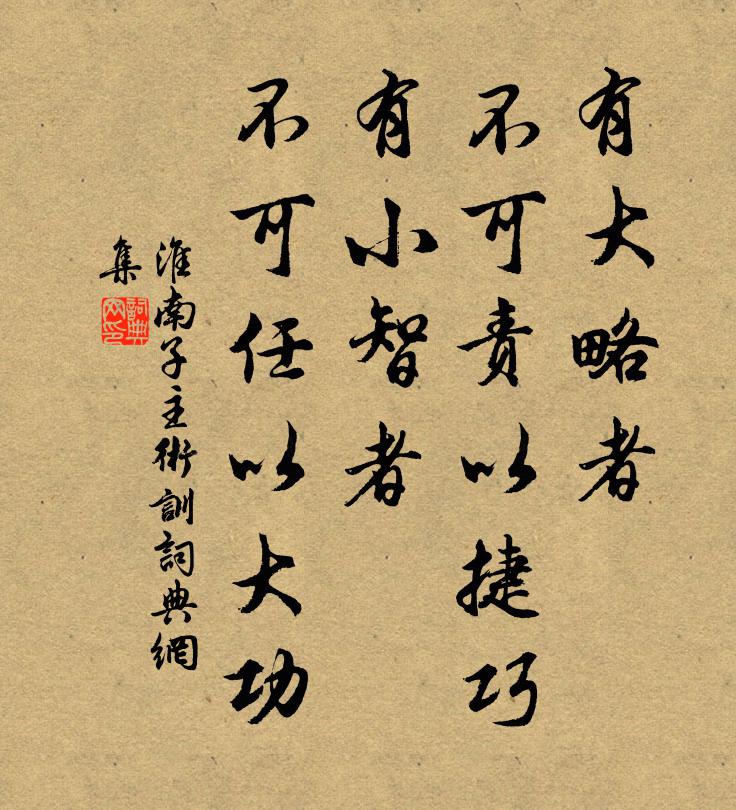 有大略者
不可責以捷巧
有小智者
不可任以大功
淮南子主術訓詞典網
集
詞典
网印